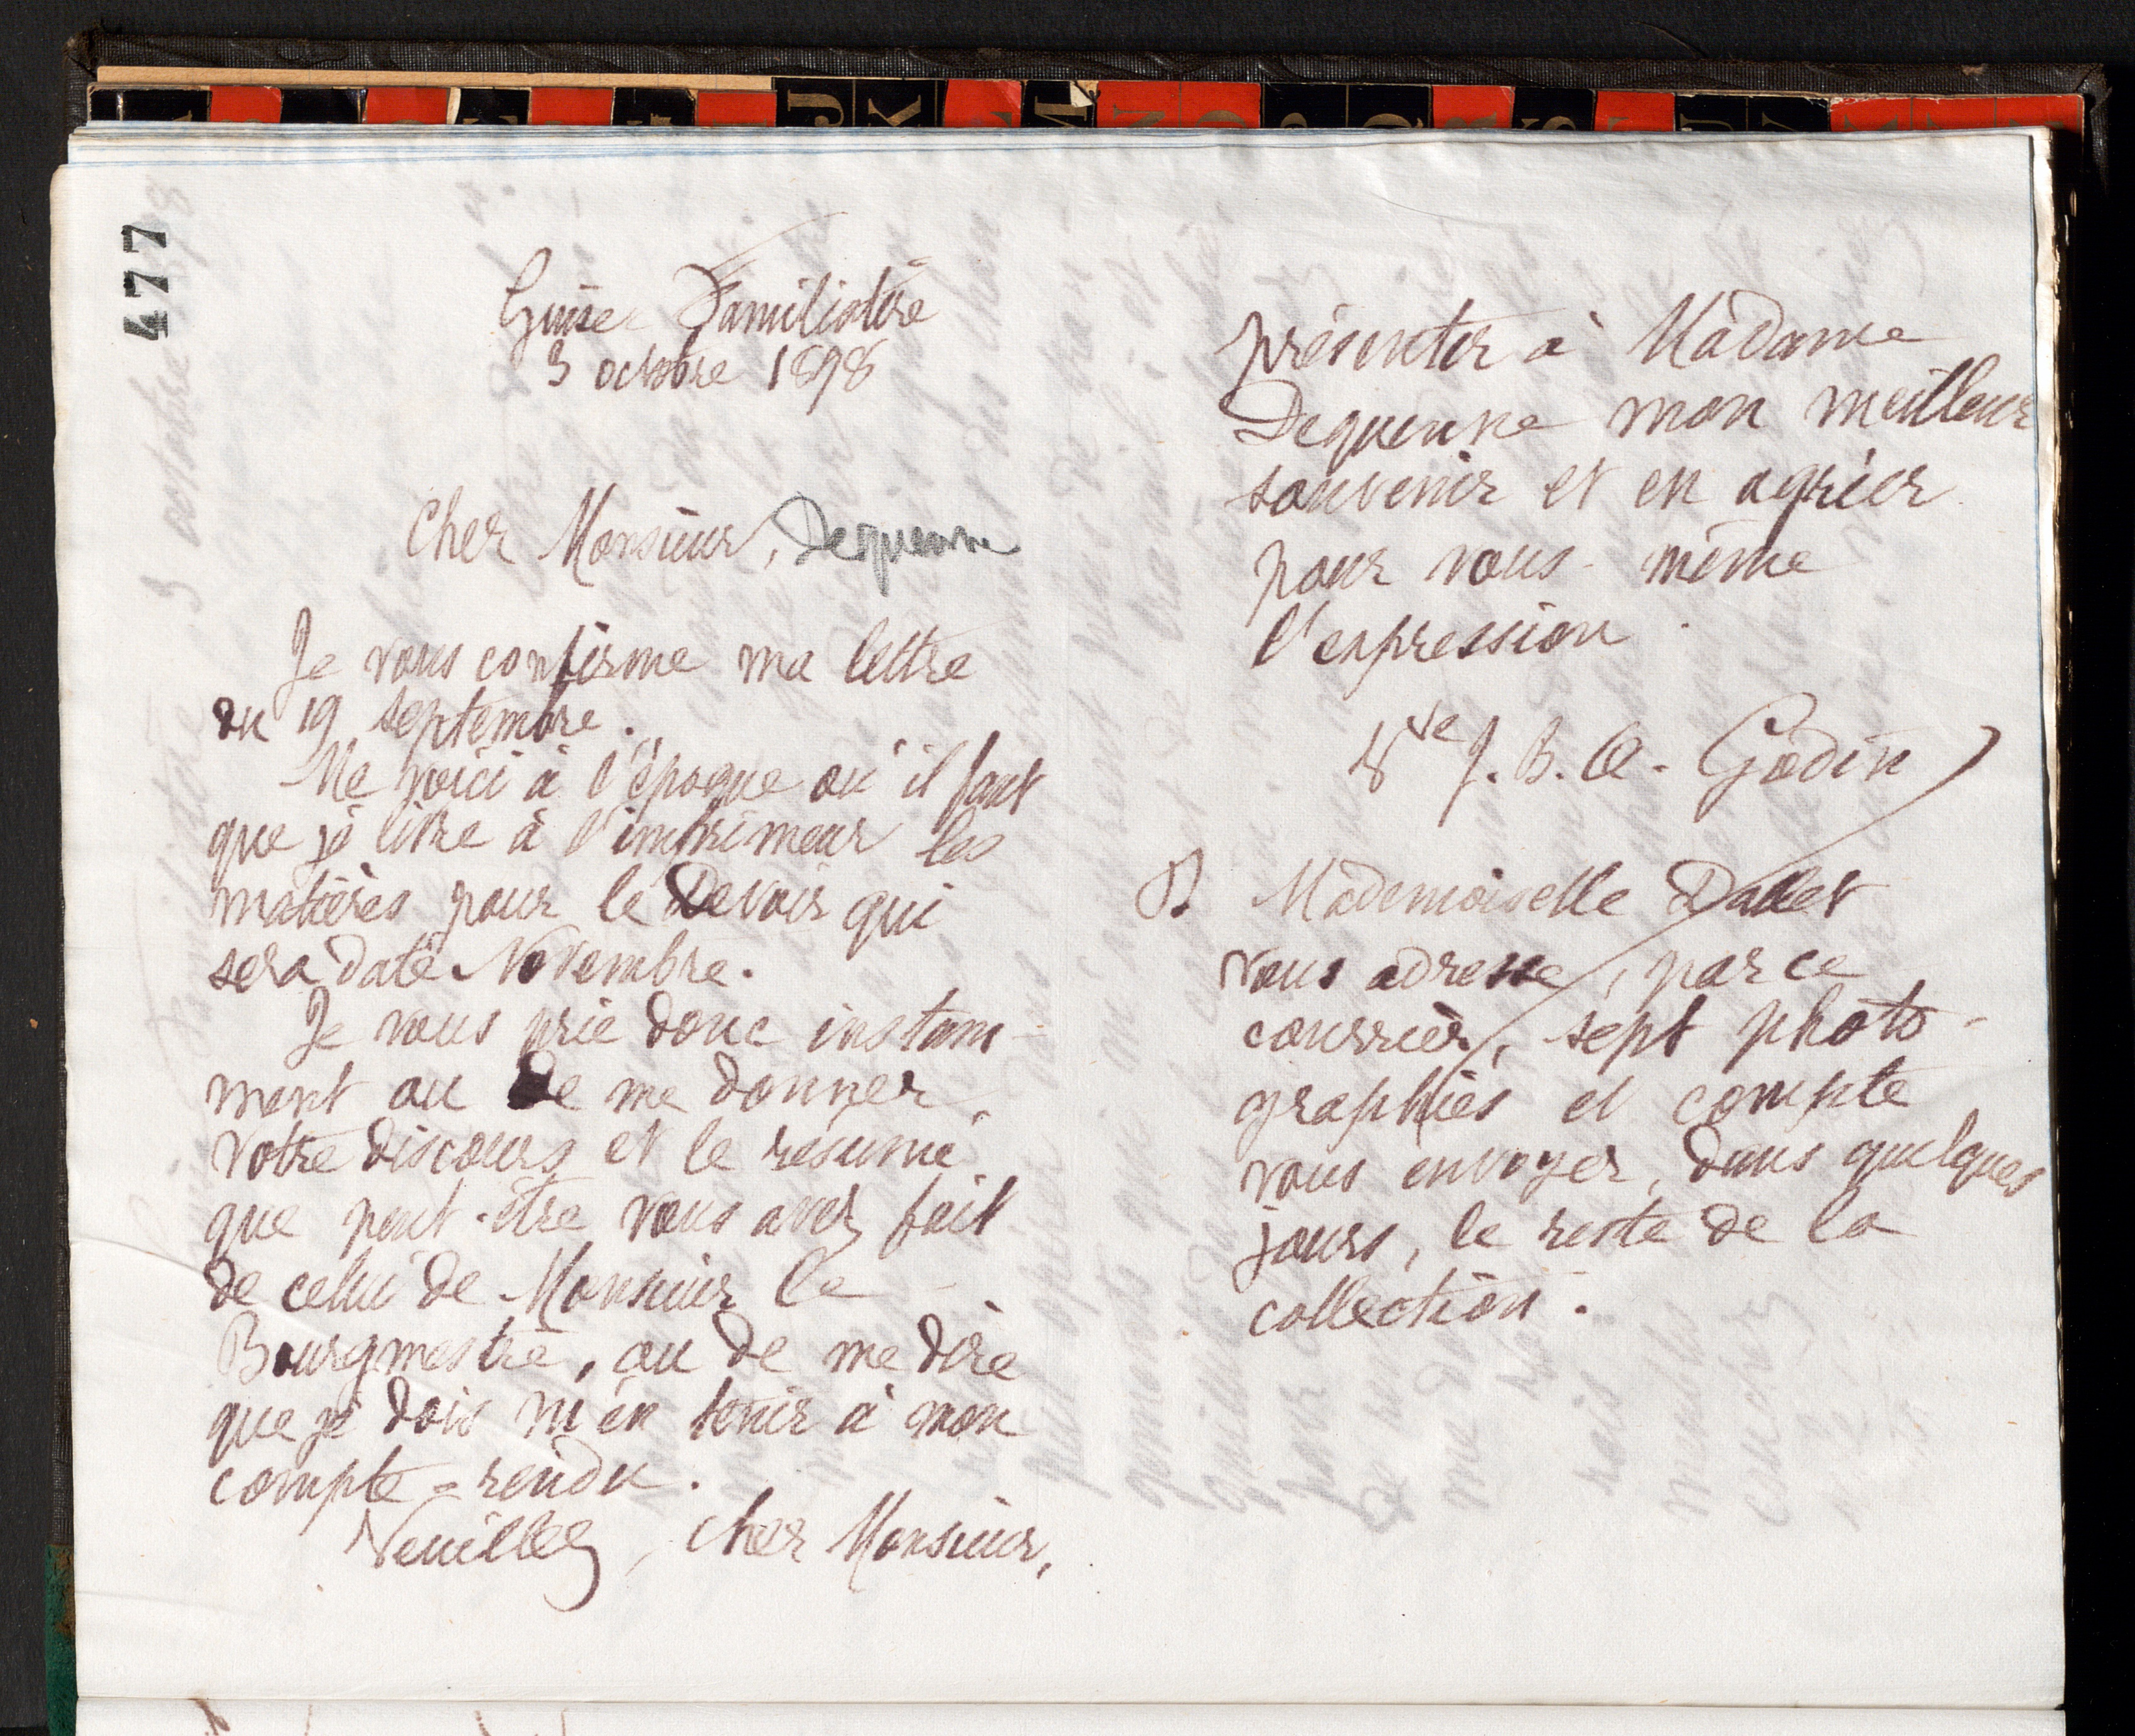 477
Guise Familistère
3 octobre 1898
Cher Monsieur, Dequenne
Je vous confirme ma lettre
du 19 septembre.
Me voici à l'époque où il faut
que je livre à l'imprimeur les
matières pour le Devoir qui
sera daté Novembre.
Je vous prie donc instam-
ment ou de me donner
votre discours et le résumé
que peut-être vous avez fait
de celui de Monsieur le
Bourgmestre, ou de me dire
que je dois m'en tenir à mon
compte-rendu.
Veuillez, cher Monsieur,
présenter à Madame
Dequenne mon meilleur
souvenir et en agréer
pour vous-même
l'expression.
Vve J. B. A. Godin
P. Mademoiselle Dallet
vous adresse, par ce
courrier, sept photo-
graphies et compte
vous envoyer, dans quelques
jours, le reste de la
collection.